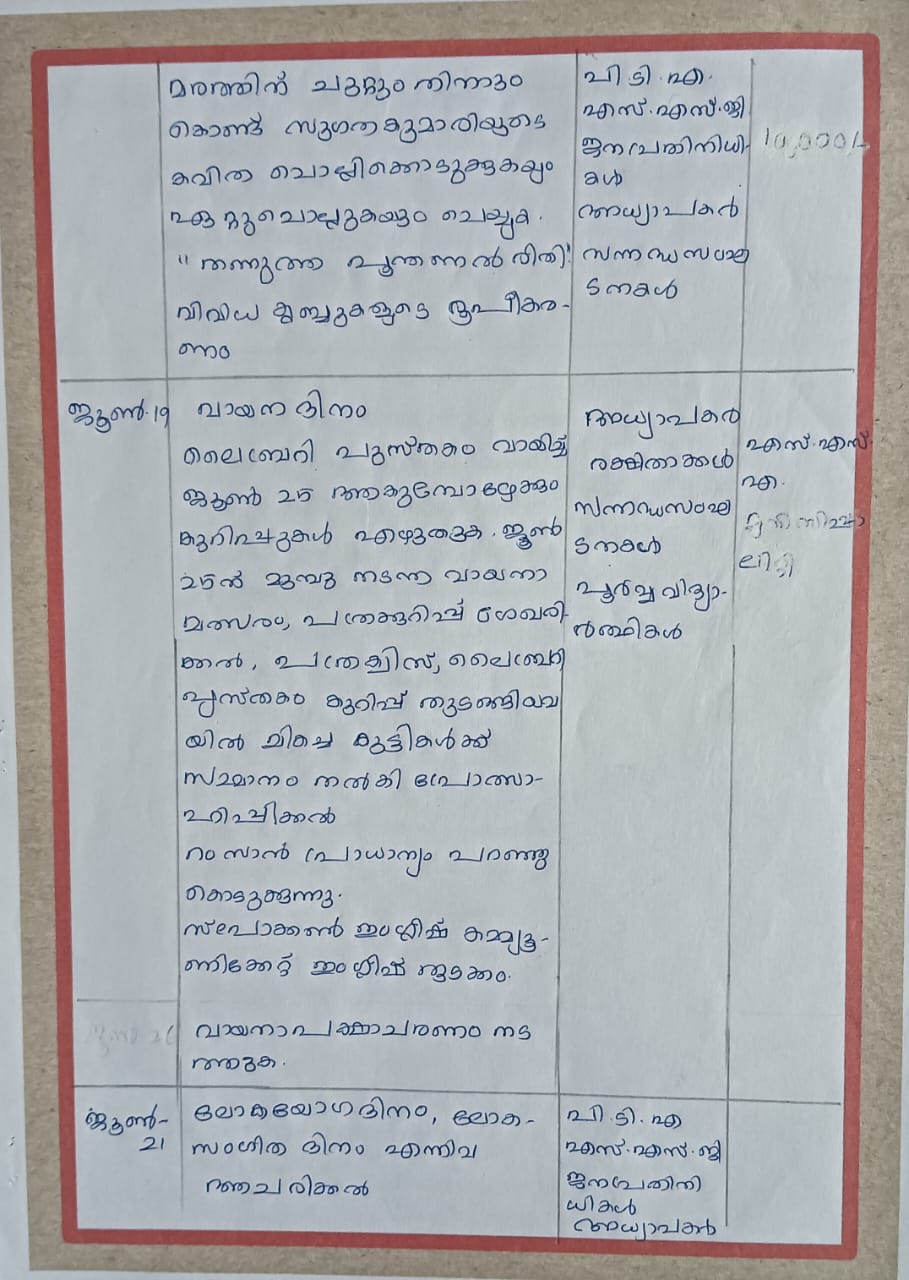 മരത്തിന് ചുറ്റും നിന്നും
കൊണ്ട് സുഗതകുമാരിയുടെ
കവിത ചൊല്ലിക്കൊടുക്കുകയും
ഏറ്റുചൊല്ലുകയും ചെയ്യുക.
വിവിധ ക്ലബ്ബുകളുടെ രൂപീകര-
ണം
പി.ടി.എ.
എസ്.എസ്.ജി
ജനപ്രതിനിധി-
കൾ
അധ്യാപകർ
സന്നദ്ധസംഘ
ടനകൾ
10,000/-
ജൂൺ-19
വായനദിനം
ലൈബ്രറി പുസ്തകം വായിച്ച്
ജൂൺ 25 ആകുമ്പോഴേക്കും
കുറിപ്പുകൾ എഴുതുക. ജൂൺ
25ന് മുമ്പു നടന്ന വായനാ
മത്സരം, പത്രക്കുറിപ്പ് ശേഖരി-
ക്കൽ, പത്രക്വിസ്, ലൈബ്രറി
പുസ്തകം കുറിപ്പ് തുടങ്ങിയവ
യിൽ മികച്ച കുട്ടികൾക്ക്
സമ്മാനം നൽകി പ്രോത്സാ-
ഹിപ്പിക്കൽ
റംസാൻ പ്രാധാന്യം പറഞ്ഞു
കൊടുക്കുന്നു.
സ്പോക്കൺ ഇംഗ്ലീഷ് കമ്മ്യൂ-
ണിക്കേറ്റ് ഇംഗ്ലീഷ് തുടക്കം.
അധ്യാപകർ
രക്ഷിതാക്കൾ
സന്നദ്ധസംഘ
ടനകൾ
പൂർവ്വ വിദ്യാ-
ർത്ഥികൾ
എസ്.എസ്.
എ.
വായനാപക്ഷാചരണം നട
ത്തുക.
ജൂൺ-
21
ലോകയോഗദിനം, ലോക-
സംഗീത ദിനം എന്നിവ
ആചരിക്കൽ
പി.ടി.എ
എസ്.എസ്.ജി
ജനപ്രതിനി
ധികൾ
അധ്യാപകർ